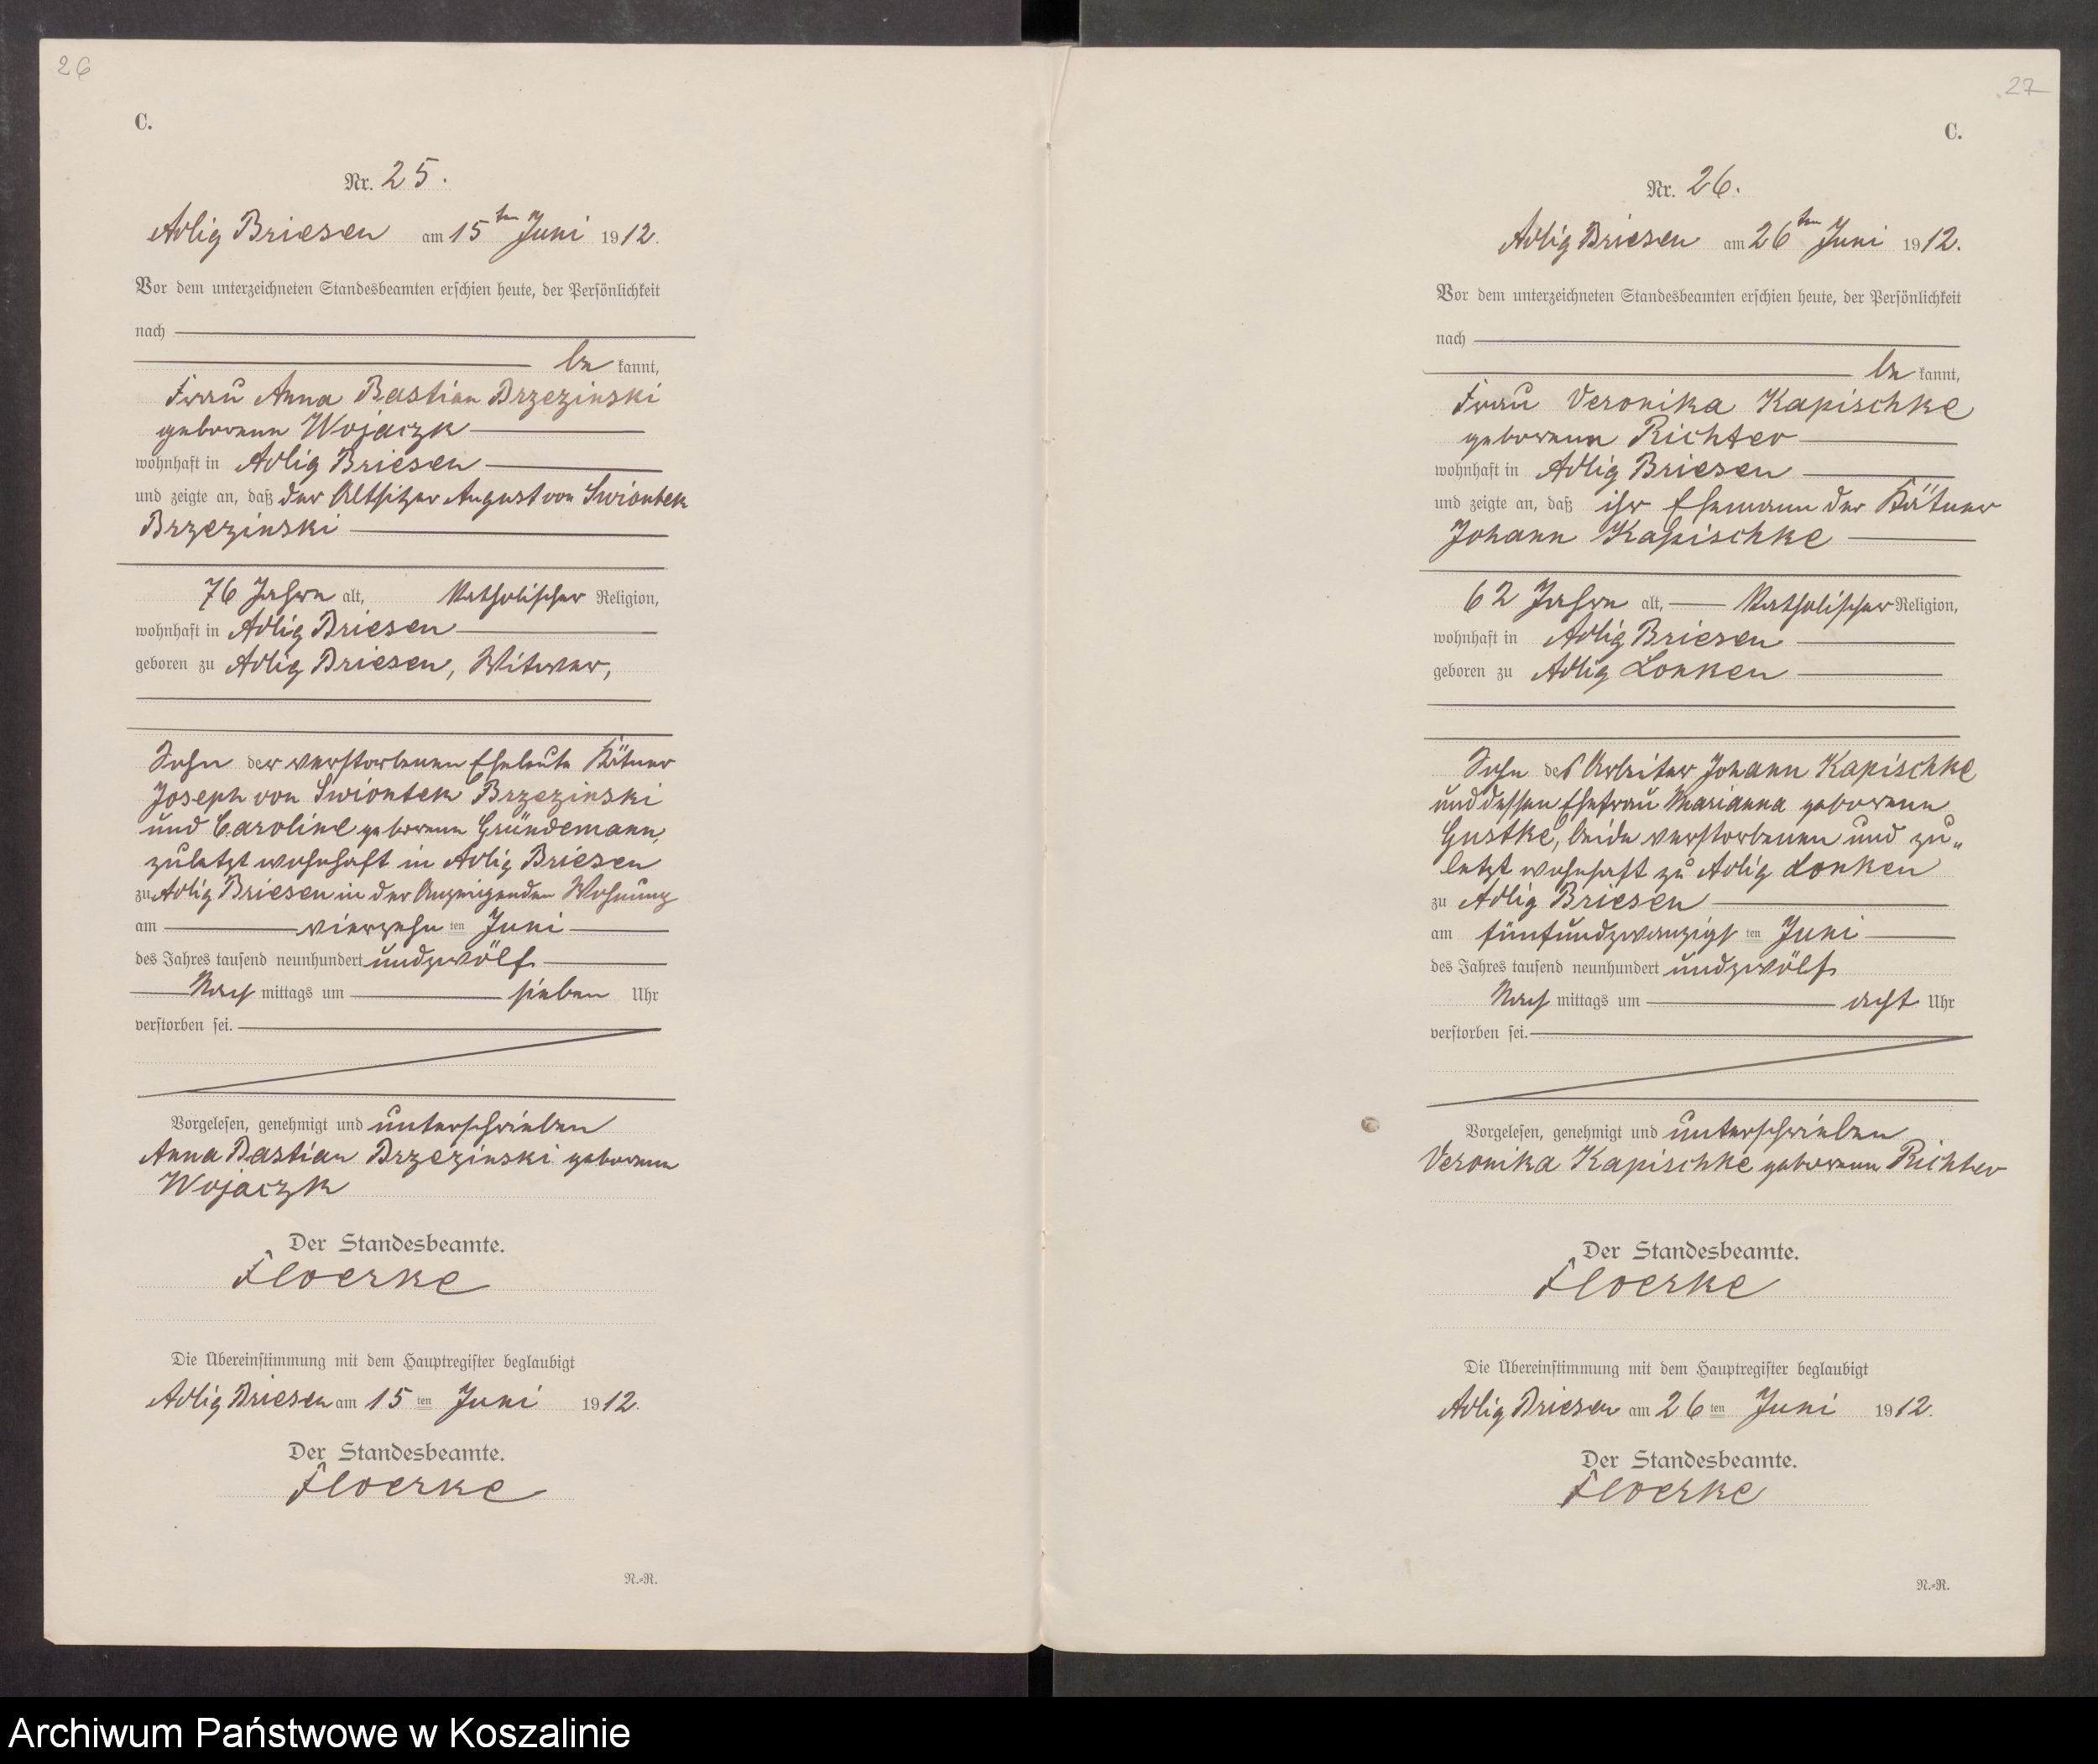 26
C.
Nr. 25.
Adlig Briesen am 15ten Juni 1912.
Vor dem unterzeichneten Standesbeamten erschien heute, der Persönlichkeit
nach
be kannt,
Frau Anna Bastian Brzezinski
geborene Wojaczk
wohnhaft in Adlig Briesen
und zeigte an, daß der Altsitzer August von Swiontek
Brzezinski
76 Jahre alt, katholischer Religion,
wohnhaft in Adlig Briesen
geboren zu Adlig Briesen, Witwer,
Sohn der verstorbenen Eheleute Kätner
Joseph von Swiontek Brzezinski
und Caroline geborene Gründemann,
zuletzt wohnhaft in Adlig Briesen
zu Adlig Briesen in der Anzeigenden Wohnung
am vierzehnten Juni
des Jahres tausend neunhundert undzwölf
Nach mittags um sieben Uhr
verstorben sei.
Vorgelesen, genehmigt und unterschrieben
Anna Bastian Brzezinski geborene
Wojaczk
Der Standesbeamte.
Floerke
Die Übereinstimmung mit dem Hauptregister beglaubigt
Adlig Briesen am 15ten Juni 1912.
Der Standesbeamte.
Floerke
N.-R.
27
C.
Nr. 26.
Adlig Briesen am 26ten Juni 1912.
Vor dem unterzeichneten Standesbeamten erschien heute, der Persönlichkeit
nach
be kannt,
Frau Veronika Kapischke
geborenen Richter
wohnhaft in Adlig Briesen
und zeigte an, daß ihr Ehemann der Kätner
Johann Kapischke
62 Jahre alt, katholischer Religion,
wohnhaft in Adlig Briesen
geboren zu Adlig Lonken
Sohn des Arbeiter Johann Kapischke
und dessen Ehefrau Marianna geborene
Gustke, beide verstorbenen und zu„
letzt wohnhaft zu Adlig Lonken
zu Adlig Briesen
am fünfundzwanzigsten Juni
des Jahres tausend neunhundert undzwölf
Nach mittags um acht Uhr
verstorben sei.
Vorgelesen, genehmigt und unterschrieben
Veronika Kapischke geborene Richter
Der Standesbeamte.
Floerke
Die Übereinstimmung mit dem Hauptregister beglaubigt
Adlig Briesen am 26ten Juni 1912.
Der Standesbeamte.
Floerke
N.-R.
Archiwum Państwowe w Koszalinie